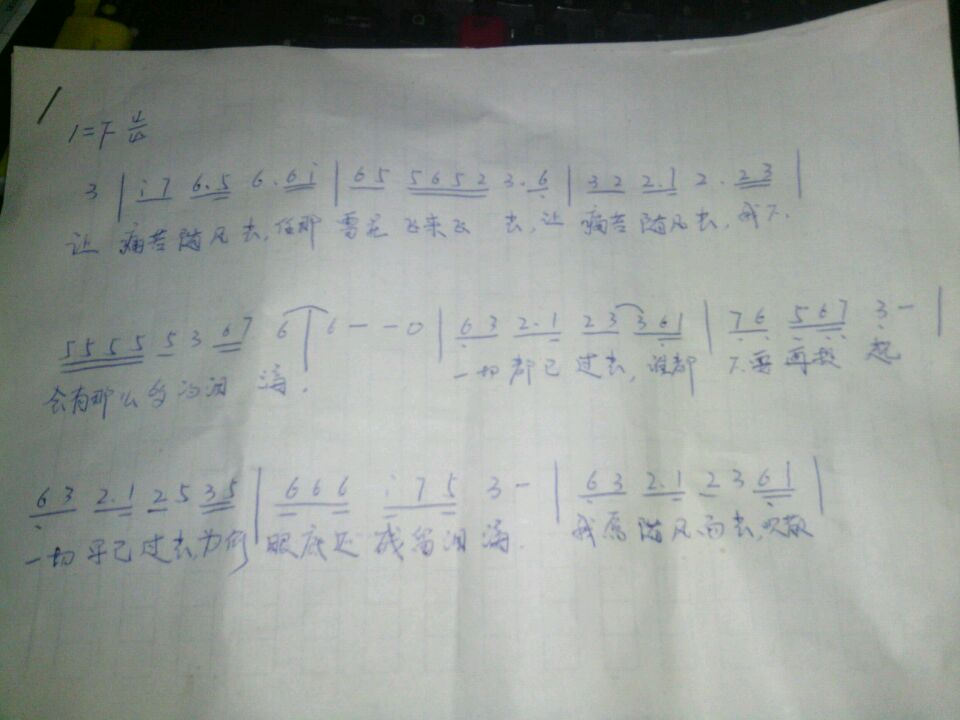 1=F 4/4
3 | i 7 6.5 6.6i | 65 5652 3.6 | 32 2.1 2.23 |
让 痛苦随风去,任那 雪花飞来飞去,让 痛苦随风去,我不
5555 5 3 67 6 | 6 - - 0 | 63 2.1 23 361 | 76 567 3 - |
会有那么多的泪滴. 一切都已过去,谁都不要再提起
63 2.1 25 35 | 666 i75 3 - | 63 2.1 23 61 |
一切早已过去,为何 眼底还残留泪滴. 我愿随风而去,吹散